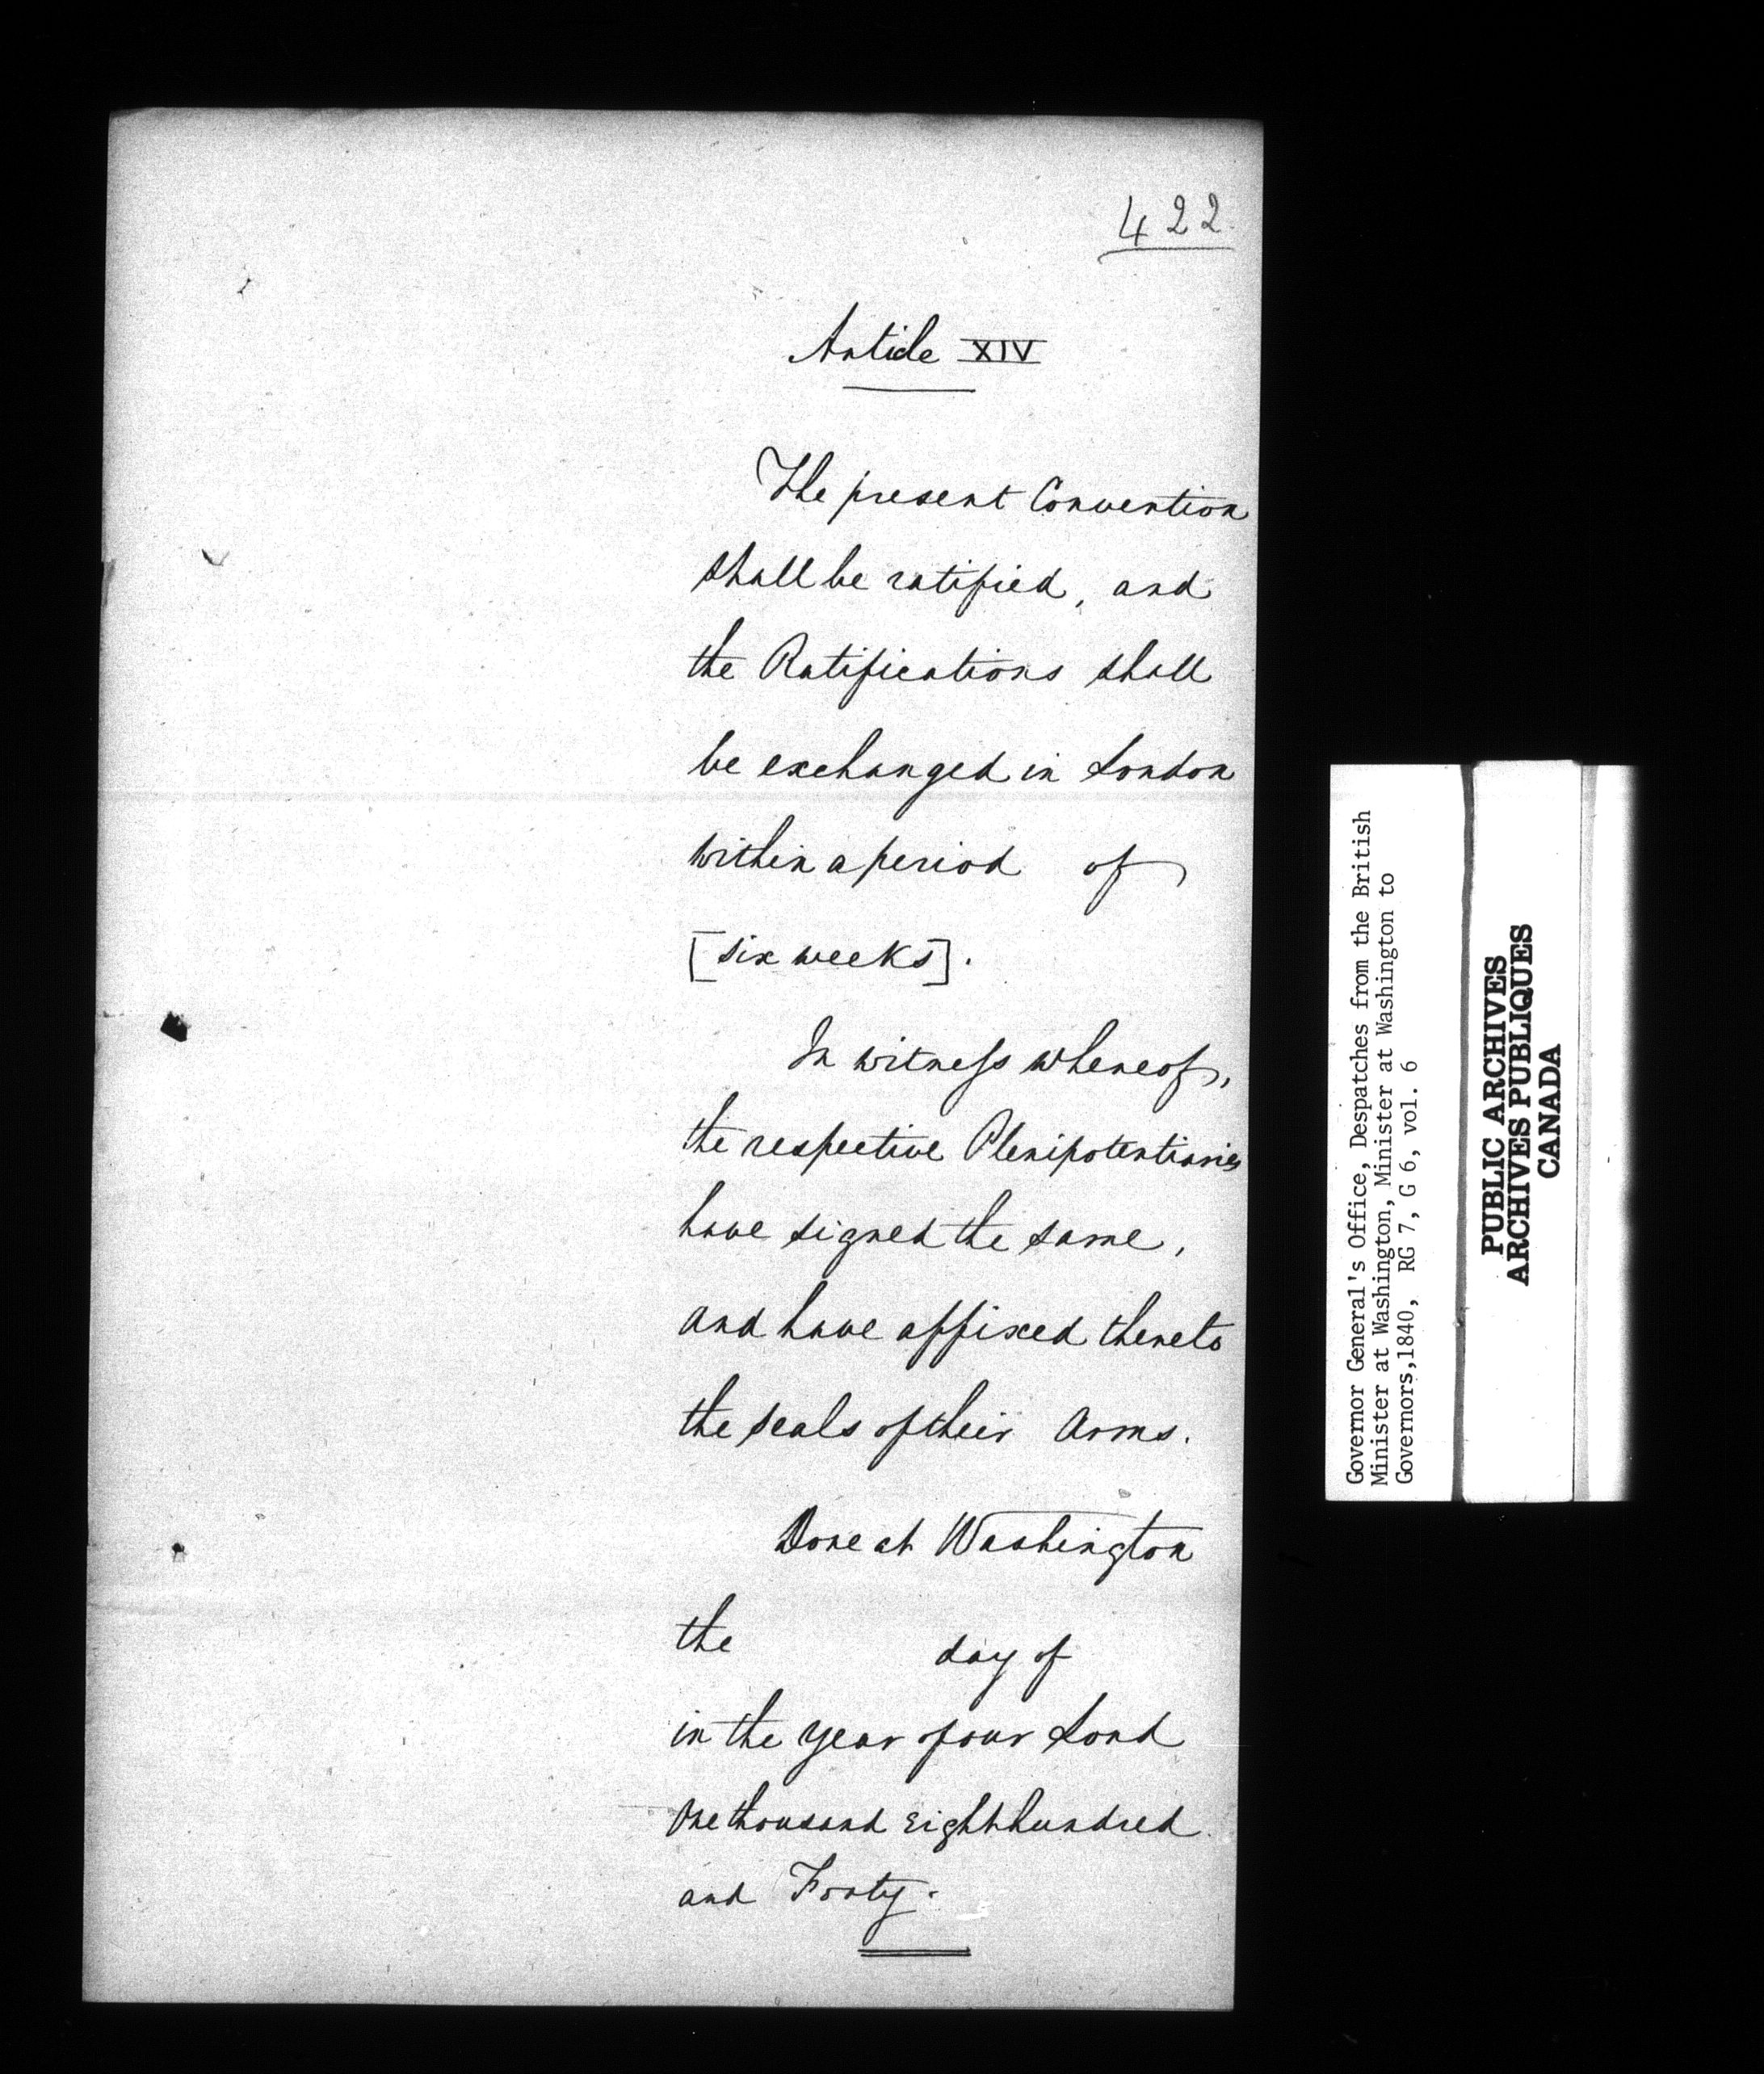 422
Article XIV
The present Convention
shall be ratified, and
the Ratifications shall
be exchanged in London
within a period of
[six weeks].
In witness whereof,
the respective Plenipotentiaries
have signed the same,
and have affixed thereto
the seals of their Arms.
Done at Washington
the day of
in the year of our Lord
One thousand Eight hundred
and Forty.
Governor General's Office, Despatches from the British
Minister at Washington, Minister at Washington to
Governors,1840, RG 7, G 6, vol. 6
PUBLIC ARCHIVES
ARCHIVES PUBLIQUES
CANADA